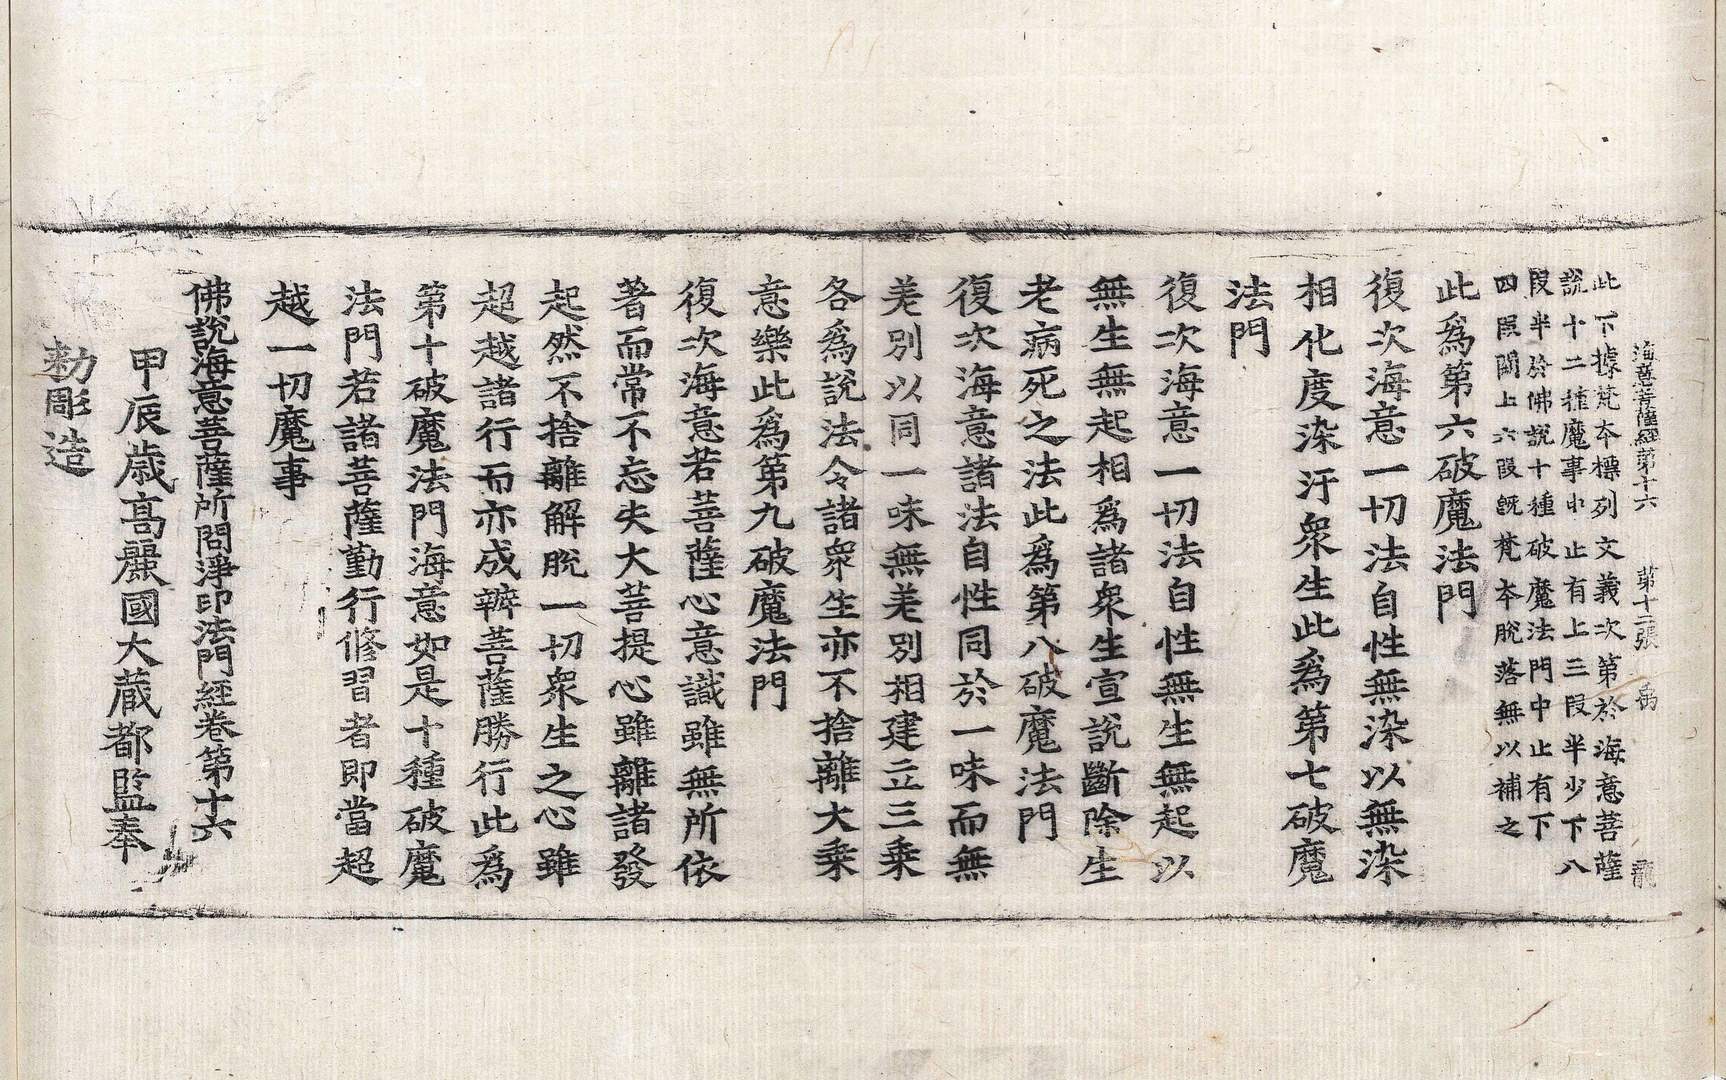 海意菩薩經第十六　第十二張　為　龍
此下據梵本標列文義次第於海意菩薩
說十二種魔事中止有上三段半少下八
段半於佛說十種破魔法門中止有下
四段闕上六段旣梵本脫落無以補之
此爲第六破魔法門
復次海意一切法自性無染以無染
相化度染汙衆生此爲第七破魔
法門
復次海意一切法自性無生無起以
無生無起相爲諸衆生宣說斷除生
老病死之法此爲第八破魔法門
復次海意諸法自性同於一味而無
差別以同一味無差別相建立三乗
各爲說法令諸衆生亦不捨離大乗
意樂此爲第九破魔法門
復次海意若菩薩心意識雖無所依
著而常不忘失大菩提心雖離諸發
起然不捨離解脫一切衆生之心雖
超越諸行而亦成辦菩薩勝行此爲
第十破魔法門海意如是十種破魔
法門若諸菩薩勤行修習者即當超
越一切魔事
佛說海意菩薩所問淨印法門經卷第十六
甲辰歲高麗國大藏都監奉
勑彫造